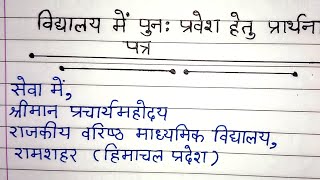 विद्यालय में पुनः प्रवेश हेतु प्रार्थना
पत्र
सेवा में,
श्रीमान प्रचार्यमहोदय
राजकीय वरिष्ठ माध्यमिक विद्यालय,
रामशहर (हिमाचल प्रदेश)